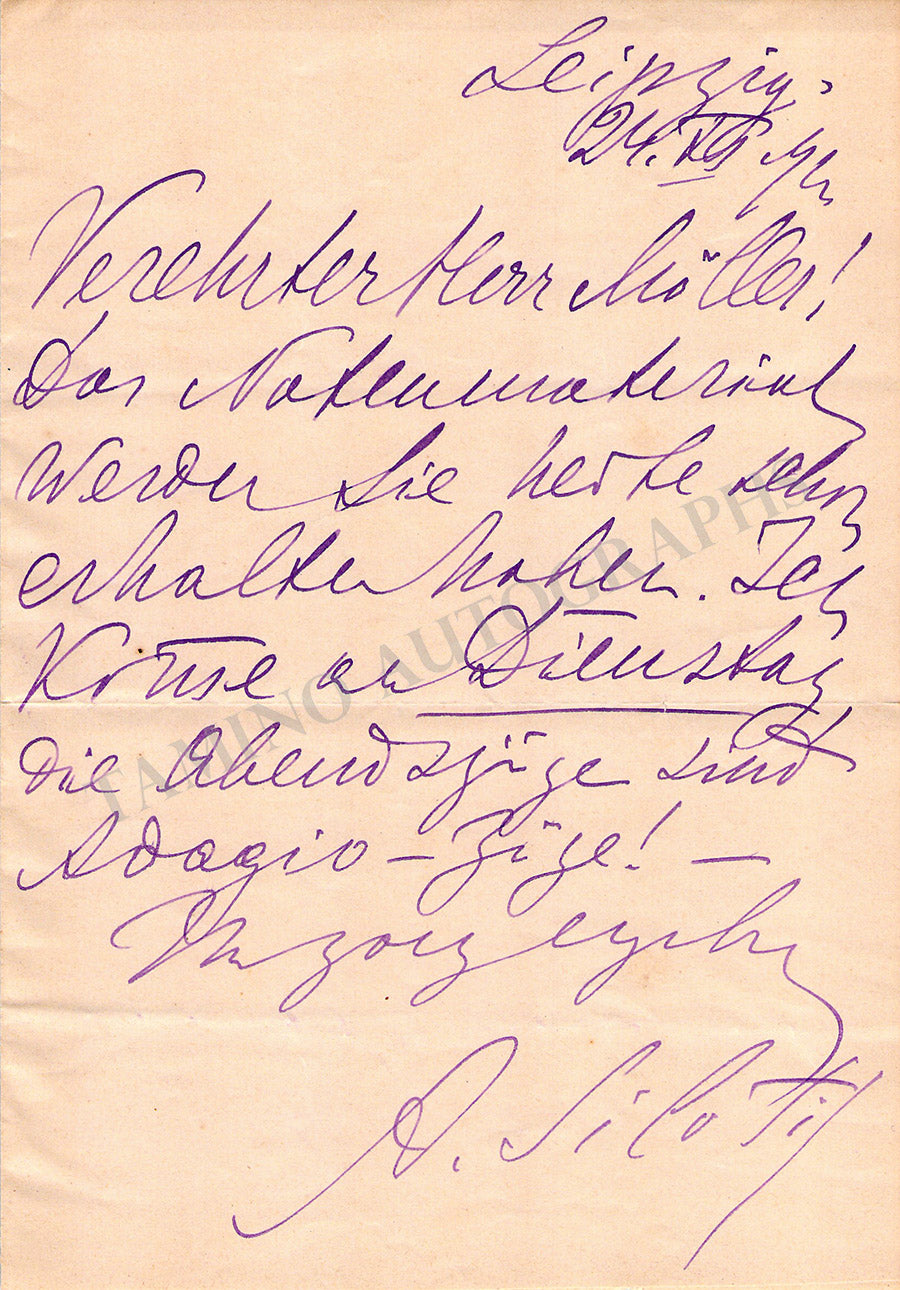 Leipzig.
24. XI
Verehrter Herr Möller!
Das Notenmaterial
werden Sie heute schon
erhalten haben. Ich
komme am Dienstag
die Abendszüge sind
Adagio – Züge! –
Ihr ganz ergeb.
A. Siloti
TAMINO AUTOGRAPHS